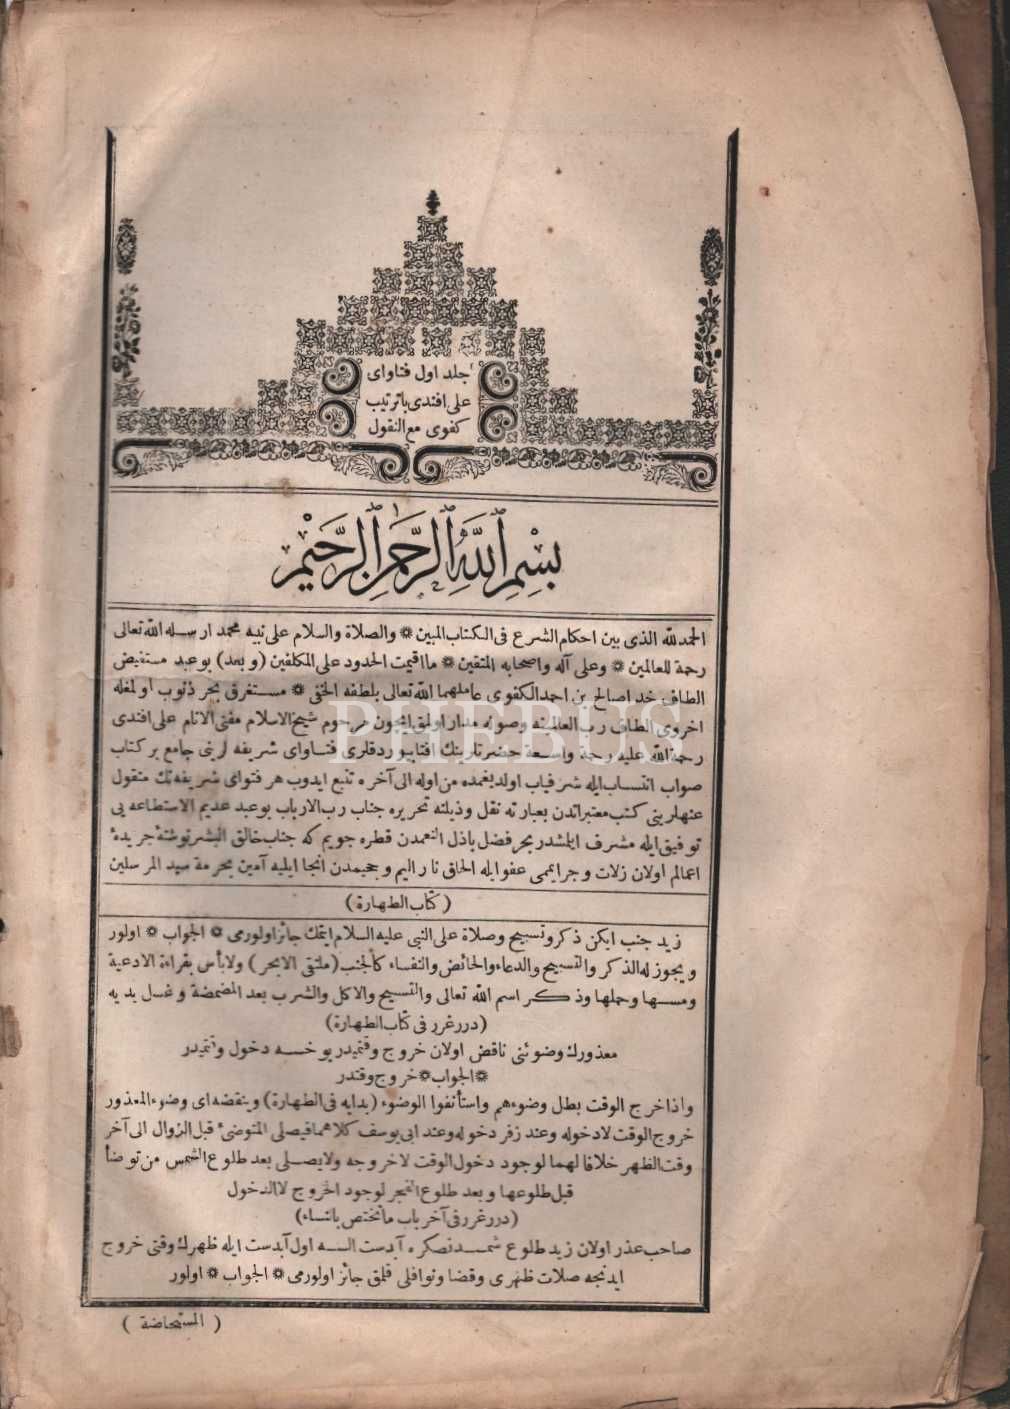 جلد اول فتاوای
علی افندی باترتیب
کفوی مع النقول
بسم الله الرحمن الرحیم
الحمدلله الذی بین احکام الشرع فی الکتاب المبین ۞ والصلاة والسلام علی نبیه محمد ارسله الله تعالی
رحمة للعالمین ۞ وعلی آله واصحابه المتقین ۞ مااقیمت الحدود علی المکلفین (وبعد) بو عبد مستفیض
الطاف خدا صالح بن احمد الکفوی عاملهما الله تعالی بلطفه الخفی ۞ مستغرق بحر ذنوب اولمغله
اخروی الطاف رب العالمینه وصوله مدار اولمق ایچون مرحوم شیخ الاسلام مفتی الانام علی افندی
رحمة الله علیه رحمة واسعة حضرتلرینك افتا بیوردقلری فتاوای شریفه لرینی جامع بر کتاب
صواب انتساب ایله شرفیاب اولدیغمده من اوله الی آخره تتبع ایدوب هر فتوای شریفه نك منقول
عنهلرینی کتب معتبراتدن بعبارته نقل وذیلنه تحریره جناب رب الارباب بو عبد عدیم الاستطاعه یی
توفیق ایله مشرف ایلمشدر بحر فضل باذل النعمدن قطره جویم که جناب خالق البشر نوشتهٔ جریدهٔ
اعمالم اولان زلات وجرایممی عفو ایله الحاق نار الیم وجحیمدن انجا ایلیه آمین بحرمة سید المرسلین
(کتاب الطهارة)
زید جنب ایکن ذکر وتسبیح وصلاة علی النبی علیه السلام ایتمك جائز اولورمی ۞ الجواب ۞ اولور
ویجوز له الذکر والتسبیح والدعاء والحائض والنفساء کالجنب (ملتقی الابحر) ولابأس بقراءة الادعیة
ومسها وحملها وذکر اسم الله تعالی والتسبیح والاکل والشرب بعد المضمضة وغسل یدیه
(درر غرر فی کتاب الطهارة)
معذورك وضوئنی ناقض اولان خروج وقتمیدر یوخسه دخول وقتمیدر
۞ الجواب ۞ خروج وقتدر
واذا خرج الوقت بطل وضوءهم واستأنفوا الوضوء (بدایه فی الطهارة) وینقضه ای وضوء المعذور
خروج الوقت لادخوله وعند زفر دخوله وعند ابی یوسف کلاهما فیصلی المتوضیٔ قبل الزوال الی آخر
وقت الظهر خلافا لهما لوجود دخول الوقت لاخروجه ولایصلی بعد طلوع الشمس من توضأ
قبل طلوعها وبعد طلوع الفجر لوجود الخروج لاالدخول
(درر غرر فی آخر باب مایختص بالنساء)
صاحب عذر اولان زید طلوع شمسدنصکره آبدست السه اول آبدست ایله ظهرك وقتی خروج
ایدنجه صلات ظهری وقضا ونوافلی قلمق جائز اولورمی ۞ الجواب ۞ اولور
(المستحاضة)
PHEBUS